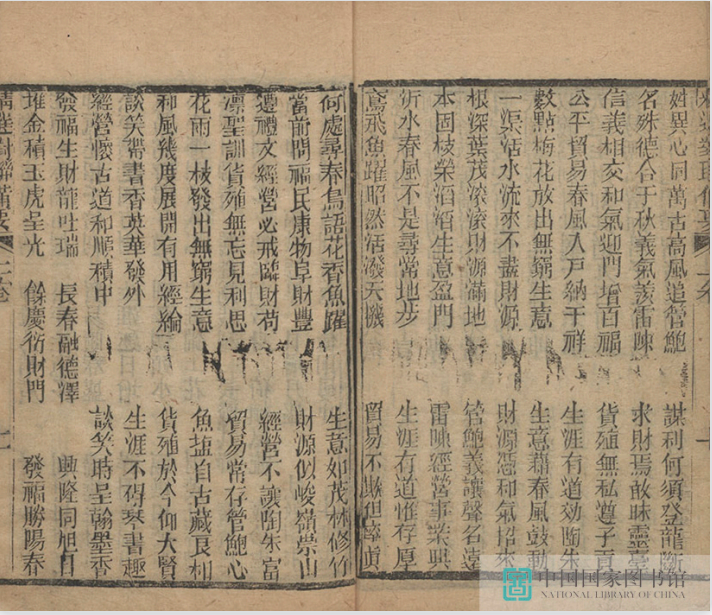 姓異心同萬古高風追管鮑 謀利何須登龍斷
名殊德合千秋義氣羨雷陳 求財焉敢昧靈臺
信義相交和氣迎門增百福 貨殖無私遵子貢
公平貿易春風入戶納千祥 生涯有道効陶朱
數點梅花放出無窮生意 生意藉春風鼓動
一渠活水流來不盡財源 財源憑和氣招來
根深葉茂滾滾財源滿地 管鮑義讓聲名遠
本固枝榮滔滔生意盈門 雷陳經營事業興
沂水春風不是尋常地步 生涯有道惟存厚
鳶飛魚躍昭然活潑天機 貿易不欺但率真
何處尋春鳥語花香魚躍 生意如茂林修竹
當前問福民康物阜財豐 財源似峻嶺崇山
遵禮文經營必戒臨財苟 經營不讓陶朱富
凛聖訓貨殖無忘見利思 貿易常存管鮑心
花雨一枝發出無窮生意 魚塩自古藏良相
和風幾度展開有用經綸 貨殖於今仰大賢
談笑帶書香英華發外 生涯不碍琴書趣
經營懷古道和順積中 談笑時呈翰墨香
發福生財龍吐瑞 長春融德澤 興隆同旭日
堆金積玉虎呈光 餘慶衍財門 發福勝陽春
中国国家图书馆
NATIONAL LIBRARY OF CHINA